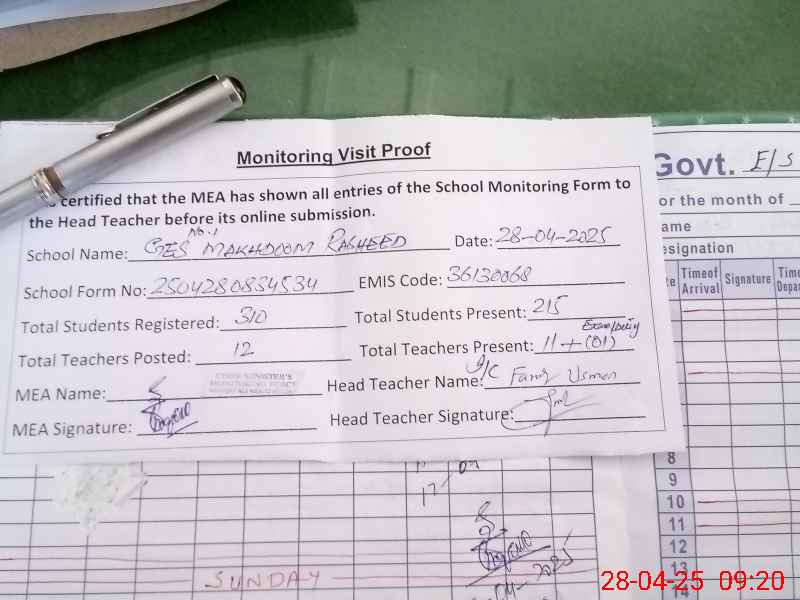 Monitoring Visit Proof
certified that the MEA has shown all entries of the School Monitoring Form to
the Head Teacher before its online submission.
School Name: GES No.1 MAKHDOOM RASHEED Date: 28-04-2025
School Form No: 2504280834534 EMIS Code: 36130068
Total Students Registered: 310 Total Students Present: 215
Total Teachers Posted: 12 Total Teachers Present: 11 + (01) Exam duty
MEA Name: CHIEF MINISTER'S MONITORING FORCE Head Teacher Name: I/C Usman
MEA Signature: Head Teacher Signature:
Govt. E/S
or the month of
ame
esignation
Time of Arrival Signature Time Depa
8
9
10
11
12
13
14
17
SUNDAY
28-04-25 09:20